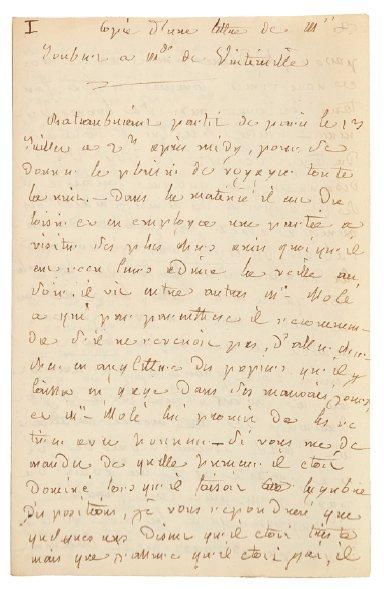 I copie d'une lettre de Mr
Joubert a Mde de Vintimille
Chateaubriand partit de paris le 13
Juillet a 2h après midy, pour se
donner le plaisir de voyager toute
la nuit - Dans la matinée il eut du
loisir et en employa une partie a
visiter ses plus chers amis quoiqu'il
eut reçu leurs adieux la veille au
soir, il vit entre autres Mr Molé
a qui pour il recommen-
da s'il ne revenoit pas, d'aller cher-
cher en angleterre des papiers qu'il y
laissa en gage dans ses mauvais jours
et Mr Molé lui promit de les re-
tirer - Si vous me de-
mandez de quelle humeur il étoit
dominé lorsqu'il faisoit
dispositions, je vous repondrai que
quelques uns disent qu'il étoit triste
mais que qu'il étoit gai, il